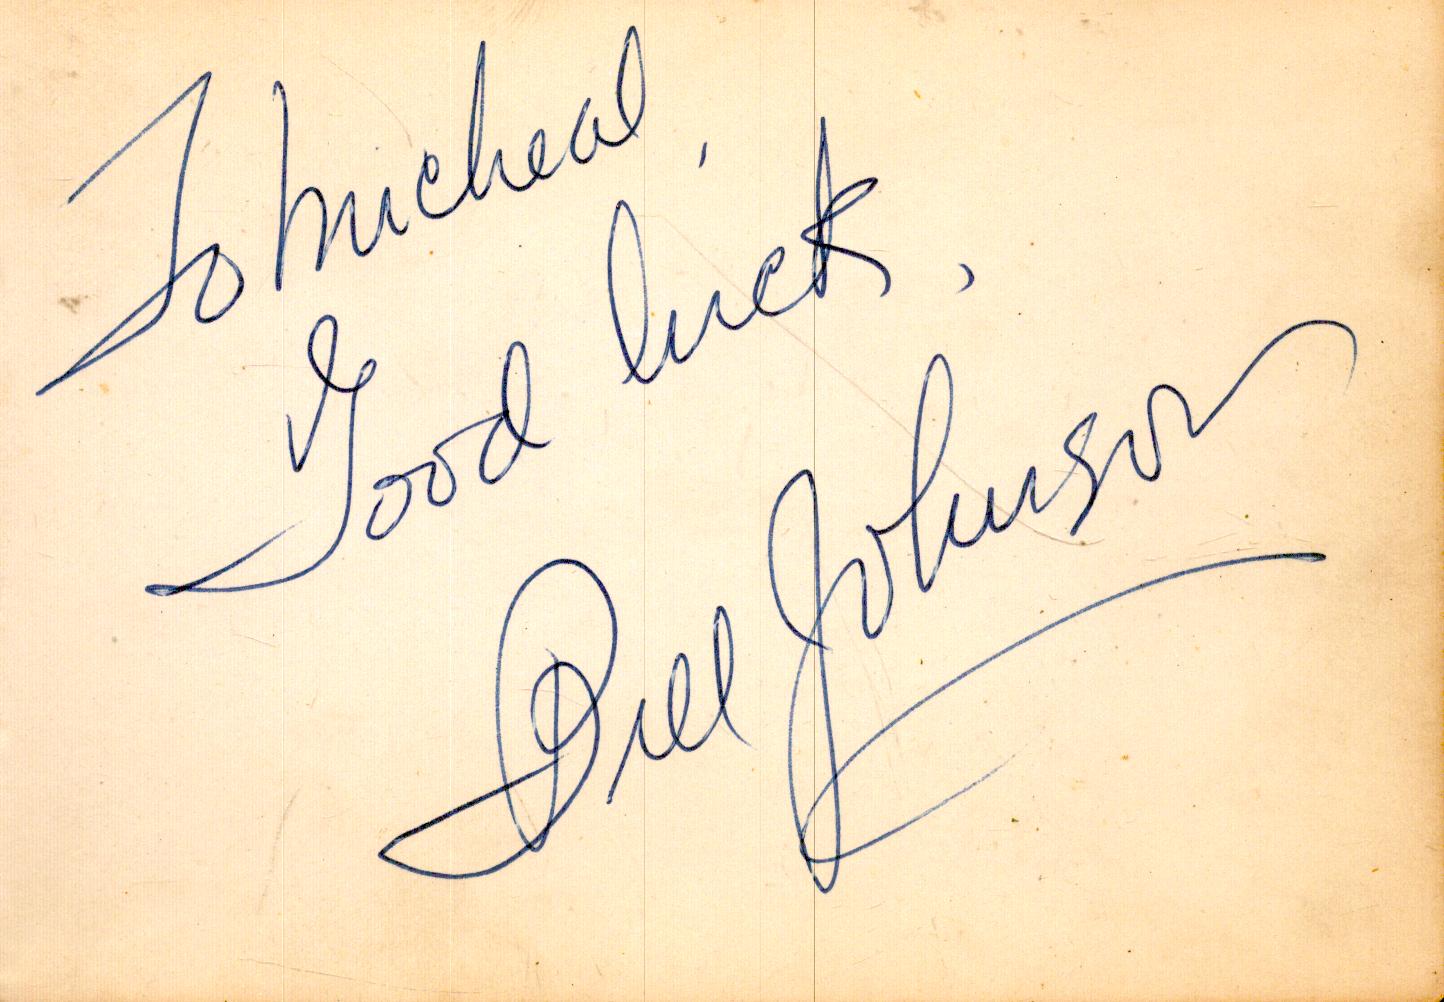 To Micheal,
Good luck,
Bill Johnson